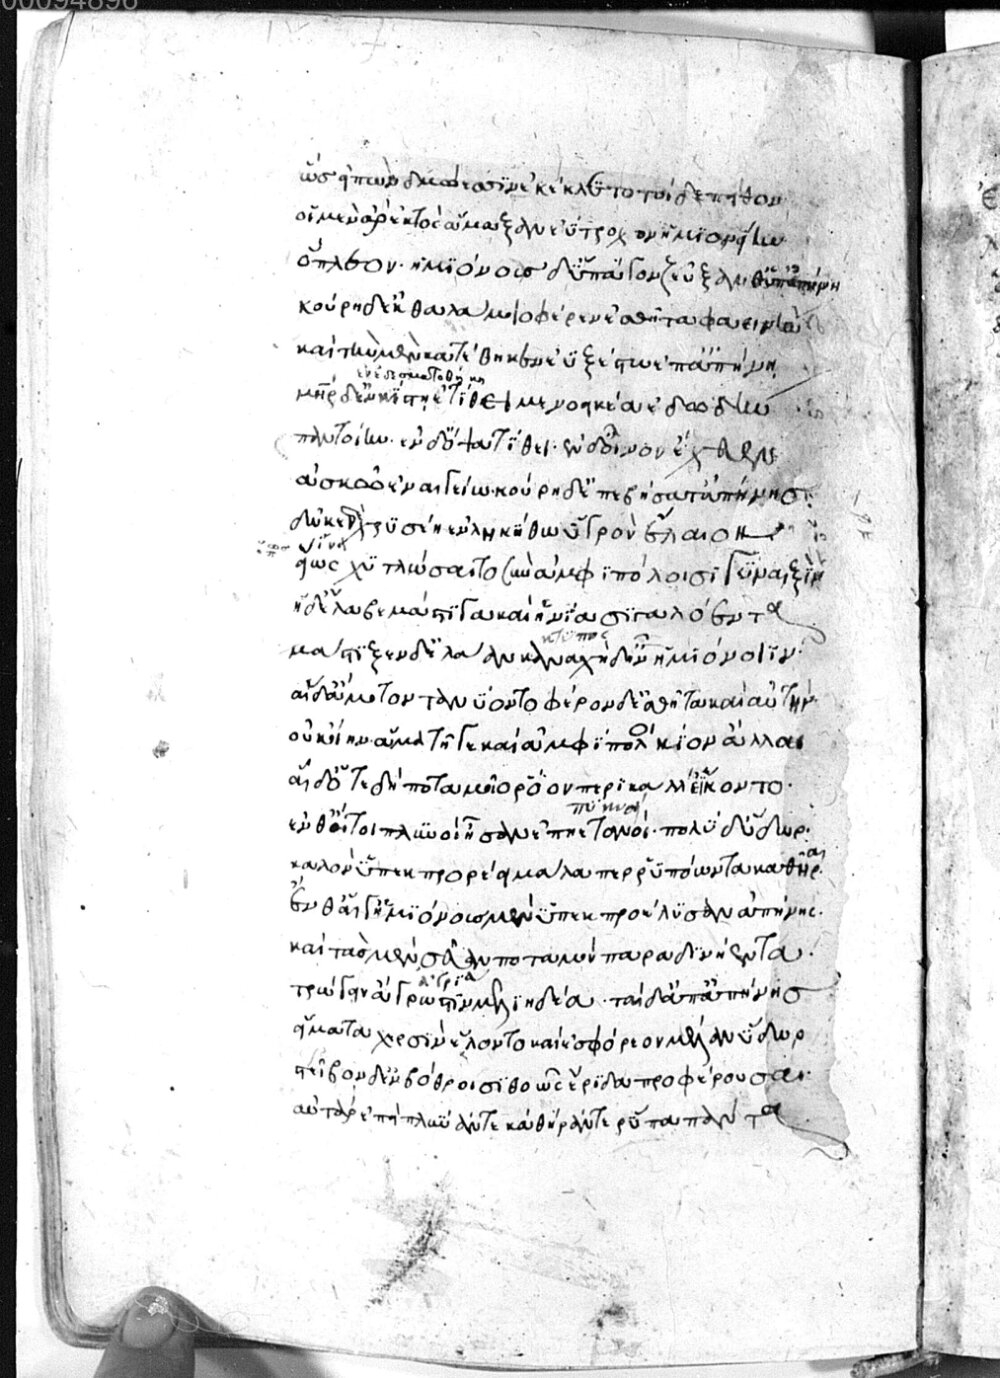 ὣς εἰπὼν δμώεσσιν ἐκέκλετο τοὶ δ' ἐπίθον
οἱ μὲν ἄρ' ἐκτὸς ἄμαξαν ἐύτροχον ἡμιονείην
ὅπλεον· ἡμιόνους δ' ὕπαγον ζεῦξαν θ' ὑπ' ἀπήνη
κούρη δ' ἐκ θαλάμοιο φέρεν ἐσθῆτα φαεινὴν
καὶ τὴν μὲν κατέθηκεν ἐϋξέστω ἐπ' ἀπήνη
μηρ δ' ἐν κίστη ἐτίθει μενοεικέα ἐδωδὴν
παντοίην· ἐν δ' ὄψα τίθει· ἐν δ' οἶνον ἔχευεν
ἀσκῶ ἐν αἰγείω· κούρη δ' ἐπεβήσατ' ἀπήνης·
δῶκεν δὲ χρϋσέη ἐν ληκήθω ὑγρὸν ἔλαιον
εἵως χϋτλώσαιτο σὺν ἀμφϊπόλοισϊ γυναιξὶν
ἡ δ' ἔλαβε μάστϊγα καὶ ἡνία σϊγαλόεντα
μάστϊξεν δ' ἐλάαν καναχὴ δ' ἦν ἡμϊόνοιϊν·
αἱ δ' ἄμοτον τανϋοντο φέρον δ' ἐσθῆτα καὶ αὐτήν·
οὐκ οἴην ἅμα τῆ γε καὶ ἀμφϊπολοι κίον ἄλλαι
αἱ δ' ὅτε δὴ ποταμοῖο ῥόον περϊκαλλέ' ἵκοντο·
ἔνθ' ἤτοι πλυνοὶ ἦσαν ἐπηετανοί· πολὺ δ' ὕδωρ·
καλὸν ὑπεκπρορέει μάλα περ ῥυπόωντα καθῆραι
ἔνθ' αἵ γ' ἡμϊόνους μὲν ὑπεκπροέλϋσαν ἀπήνης·
καὶ τὰς μὲν σεῦαν ποταμὸν παρα δϊνήεντα·
τρώγειν ἄγρωστϊν μελϊηδέα· ταὶ δ' ἀπ' ἀπήνης
εἵματα χερσὶν ἕλοντο καὶ ἐσφόρεον μέλαν ὕδωρ
στεῖβον δ' ἐν βόθροισϊ θοῶς ἔρϊδα προφέρουσαι·
αὐτὰρ ἐπὴ πλῦνάν τε κάθηράν τε ῥύπα πάντα